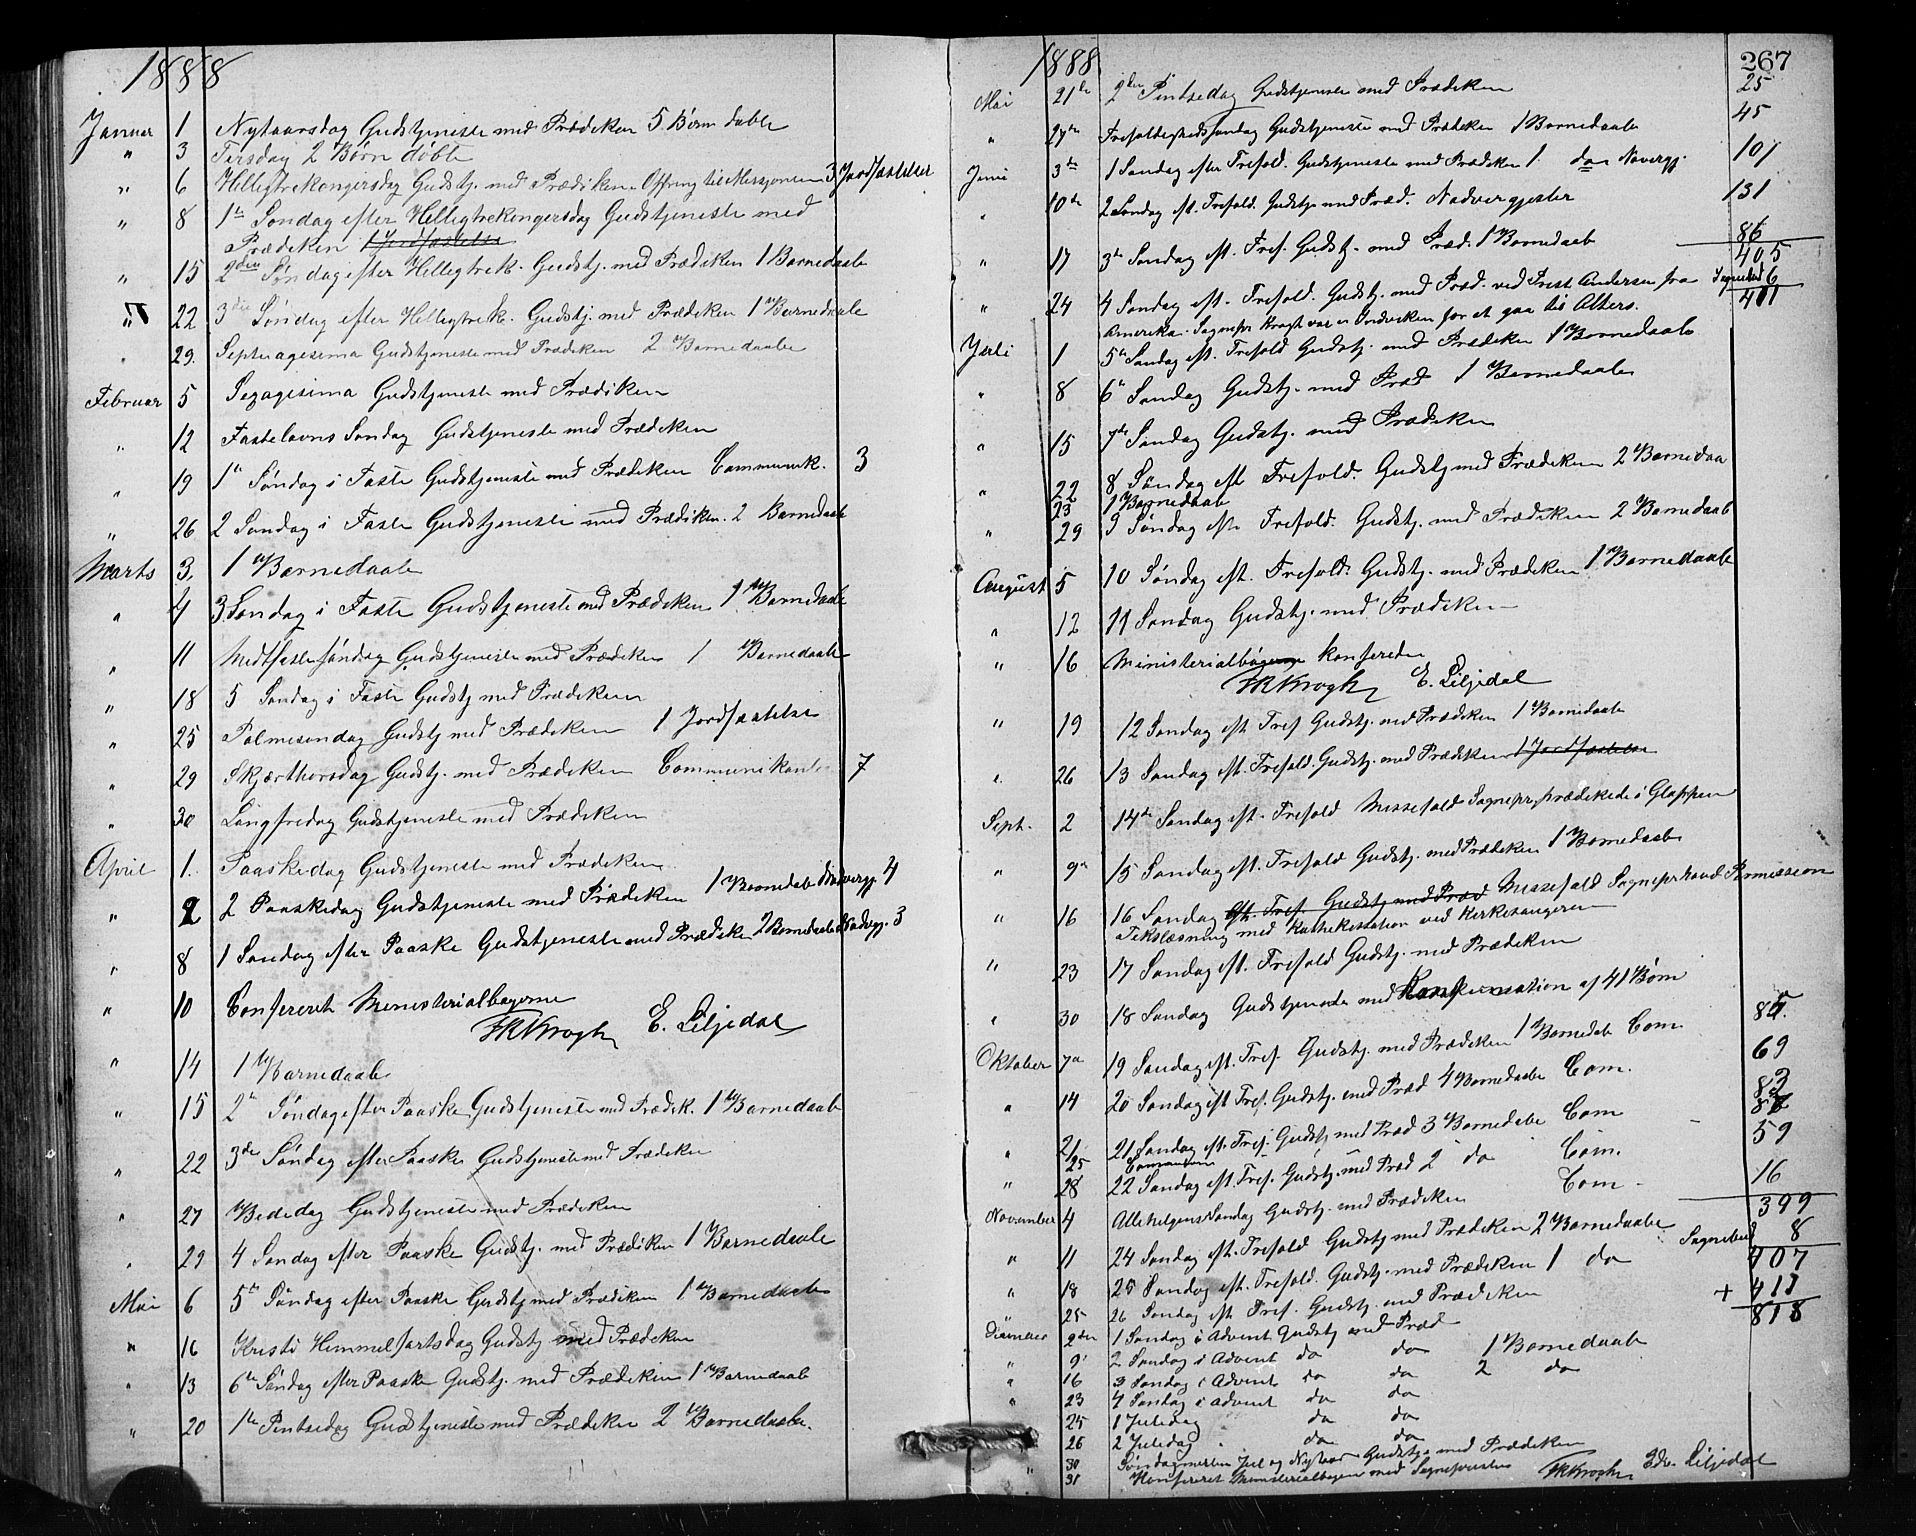 1888
Januar 1 Nytaarsdag Gudstjeneste med Prædiken 5 Børn døbte
" 3 Tirsdag 2 Børn døbte
" 6 Helligtrekongersdag Gudstj. med Prædiken. Offring til Missjonen 3 Jordfæstelser
" 8 1te Søndag efter Helligtrekongersdag Gudstjeneste med
Prædiken 1 Jordfæstelse
" 15 2den Søndag efter Helligtrek. Gudstj. med Prædiken 1 Barnedaab
" 22 3die Søndag efter Helligtrek. Gudstj. med Prædiken 1 Barnedaab
" 29. Septuagesima Gudstjeneste med Prædiken 2 Barnedaabe
Februar 5 Sexagesima Gudstjeneste med Prædiken
" 12 Fastelavns Søndag Gudstjeneste med Prædiken
" 19 1te Søndag i Faste Gudstjeneste med Prædiken Communik. 3
" 26 2 Søndag i Faste Gudstjeneste med Prædiken. 2 Barnedaab
Marts 3. 1 Barnedaab
" 4 3 Søndag i Faste Gudstjeneste med Prædiken 1 Barnedaab
" 11 Midtfastesøndag Gudstjeneste med Prædiken 1 Barnedaab
" 18 5 Søndag i Faste Gudstj med Prædiken
" 25 Palmesøndag Gudstj med Prædiken 1 Jordfæstelse
" 29 Skjærthorsdag Gudstj. med Prædiken Communikanter 7
" 30 Langfredag Gudstjeneste med Prædiken
April 1. Paaskedag Gudstjeneste med Prædiken
" 2 2 Paaskedag Gudstjeneste med Prædiken 1 Barnedab Nadvergj. 4
" 8 1 Søndag efter Paaske Gudstjeneste med Prædiken 2 Barnedaab Nadvgj. 3
" 10 Confereret Ministerialbøgerne
HKKrogh E. Liljedal
" 14 1 Barnedaab
" 15 2n Søndag efter Paaske Gudstjeneste med Prædik. 1 Barnedaab
" 22 3die Søndag efter Paaske Gudstjeneste med Prædiken
" 27 Bededag Gudstjeneste med Prædiken
" 29 4 Søndag efter Paaske Gudstj. med Prædiken 1 Barnedaab
Mai 6 5te Søndag efter Paaske Gudstj med Prædiken 1 Barnedaab
" 16 Kristi Himmelfartsdag Gudstj med Prædiken
" 13 6te Søndag efter Paaske Gudstj. med Prædiken 1 Barnedaab
" 20 1te Pintsedag Gudstjeneste med Prædiken 2 Barnedaabe.
1888 267
Mai 21de 2den Pintsedag Gudstjeneste med Prædiken 25
" 27de Trefoldighedssøndag Gudstjeneste med Prædiken 1 Barnedaab 45
Juni 3die 1 Søndag efter Trefold. Gudstjeneste med Prædiken 1 do Navergj. 101
" 10de 2 Søndag eft. Trefold. Gudstj med Præd. Nadvergjester 131
" 17 3die Søndag eft. Tref. Gudstj. med Præd. 1 Barnedaab 86
405
" 24 4 Søndag eft. Trefold. Gudstj. med Præd. ved Prest Andersen fra Sognebud 6
Amerika. Sognepr Krogh var i Indviken for at gaa til Alters. 411
Juli 1 5te Søndag eft. Trefold Gudstj. med Prædiken 1 Barnedaab
" 8 6te Søndag Gudstj. med Præd 1 Barnedaab
" 15 7de Søndag Gudstj. med Prædiken
" 22 8 Søndag eft Trefold. Gudstj med Prædiken 2 Barnedaa
23 1 Barnedaab
" 29 9 Søndag eft. Trefold. Gudstj. med Prædiken 2 Barnedaab
August 5 10 Søndag eft. Trefold. Gudstj. med Prædiken 1 Barnedaab
" 12 11 Søndag Gudstj. med Prædiken
" 16 Ministerialbøgerne konfereret
HKKrogh E. Liljedal
" 19 12 Søndag eft Tref Gudstj. med Prædiken 1 Barnedaab
" 26 13 Søndag eft. Trefold. Gudstj. med Prædiken 1 Jordfæstelse
Sept. 2 14de Søndag eft. Trefold Messefald Sognepr. prædikede i Gloppen
" 9n 15 Søndag eft. Trefold Gudstj. med Prædiken 1 Barnedaab
" 16 16 Søndag eft. Tref. Gudstj med Præd Messefald Sognepr havd Permission
Tekstlæsning med Kathekisation ved Kirkesangeren
" 23 17 Søndag eft. Trefold Gudstj. med Prædiken
" 30 18 Søndag Gudstjeneste med Konfirmation af 41 Børn
Oktober 7n 19 Søndag eft. Tref. Gudstj. med Prædiken 1 Barnedab Com. 85.
" 14 20 Søndag eft Tref. Gudstj. med Præd 4 Barnedaabe Com. 69
" 21 21 Søndag eft. Tref. Gudstj med Præd 3 Barnedabe Com 82
25
" 28 22 Søndag eft. Tref. Gudstj. med Præd 2 do Com. 59
November 4 Allehelgens Søndag Gudstj. med Prædiken Com 16
399
" 11 24 Søndag eft. Trefold Gudstj med Prædiken 2 Barnedaabe Sognebud 8
407
" 18 25 Søndag eft. Trefold. Gudstj. med Prædiken 1 do
+ 411
" 25 26 Søndag eft Tref. Gudstj med Prædiken 818
December 2den 1 Søndag i Advent Gudstj med Præd
" 9 2 Søndag i Advent do do 1 Barnedaab
" 16 3 Søndag i Advent do do 2 do
" 23 4 Søndag i Advent do do
25 1 Juledag do do
26 2 Juledag do do
30 Søndag mellem Jul og Nytaar Gudstj. med Prædiken
" 31 Konfereret Ministerialbøgerne med Sognepresten HKKrogh Edv. Liljedal